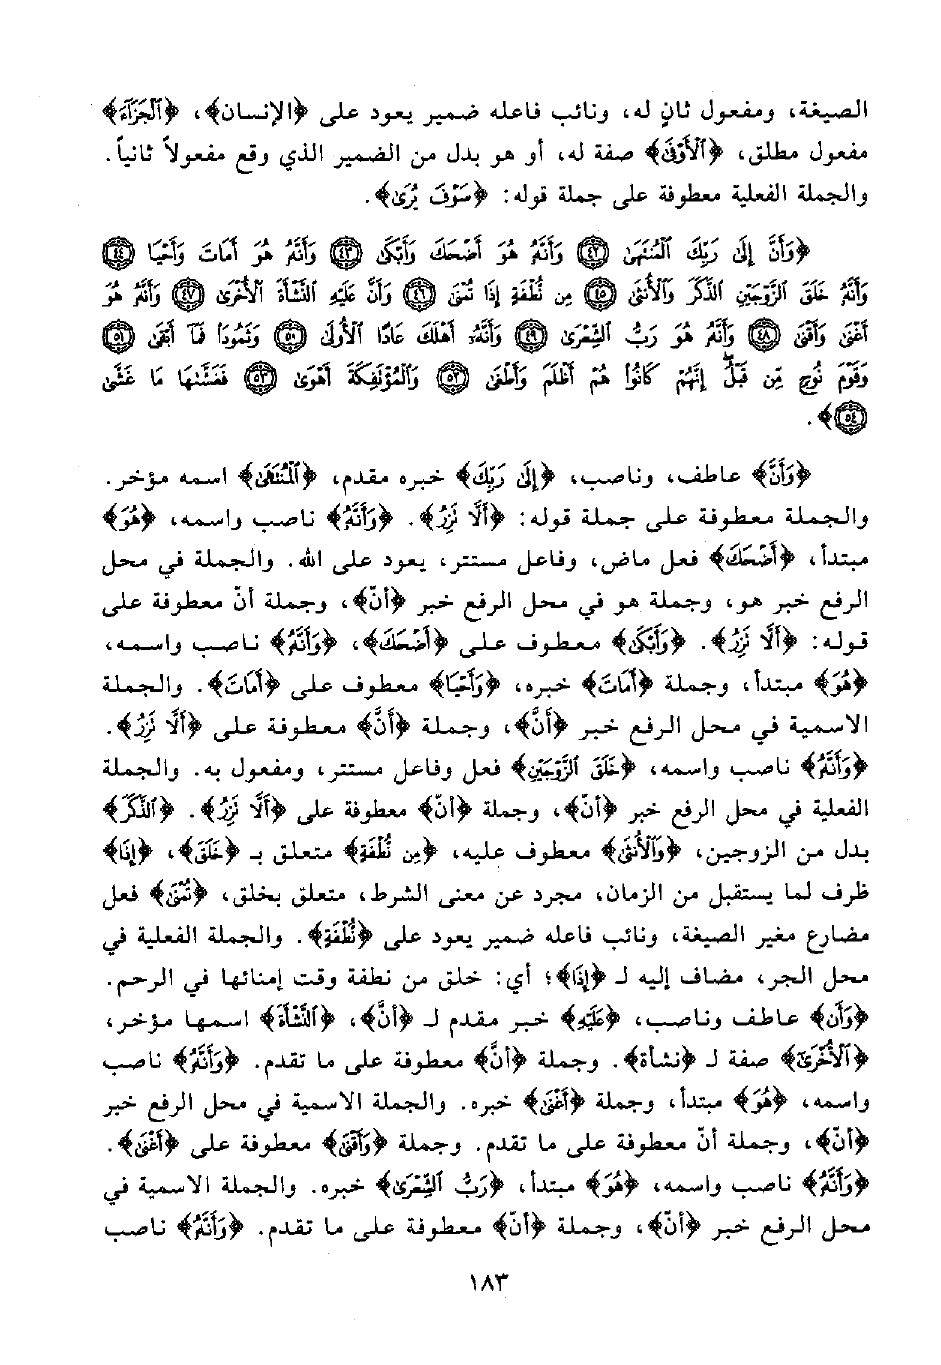 الصيغة، ومفعول ثانٍ له، ونائب فاعله ضمير يعود على ﴿الإنسان﴾، ﴿ٱلْجَزَآءَ﴾
مفعول مطلق، ﴿ٱلْأَوْفَىٰ﴾ صفة له، أو هو بدل من الضمير الذي وقع مفعولاً ثانياً.
والجملة الفعلية معطوفة على جملة قوله: ﴿سَوْفَ يُرَىٰ﴾.
﴿وَأَنَّ إِلَىٰ رَبِّكَ ٱلْمُنتَهَىٰ ٤٢ وَأَنَّهُۥ هُوَ أَضْحَكَ وَأَبْكَىٰ ٤٣ وَأَنَّهُۥ هُوَ أَمَاتَ وَأَحْيَا ٤٤
وَأَنَّهُۥ خَلَقَ ٱلزَّوْجَيْنِ ٱلذَّكَرَ وَٱلْأُنثَىٰ ٤٥ مِن نُّطْفَةٍ إِذَا تُمْنَىٰ ٤٦ وَأَنَّ عَلَيْهِ ٱلنَّشْأَةَ ٱلْأُخْرَىٰ ٤٧ وَأَنَّهُۥ هُوَ
أَغْنَىٰ وَأَقْنَىٰ ٤٨ وَأَنَّهُۥ هُوَ رَبُّ ٱلشِّعْرَىٰ ٤٩ وَأَنَّهُۥٓ أَهْلَكَ عَادًا ٱلْأُولَىٰ ٥٠ وَثَمُودَا۟ فَمَآ أَبْقَىٰ ٥١
وَقَوْمَ نُوحٍ مِّن قَبْلُ ۖ إِنَّهُمْ كَانُوا۟ هُمْ أَظْلَمَ وَأَطْغَىٰ ٥٢ وَٱلْمُؤْتَفِكَةَ أَهْوَىٰ ٥٣ فَغَشَّىٰهَا مَا غَشَّىٰ
٥٤﴾.
﴿وَأَنَّ﴾ عاطف، وناصب، ﴿إِلَىٰ رَبِّكَ﴾ خبره مقدم، ﴿ٱلْمُنتَهَىٰ﴾ اسمه مؤخر.
والجملة معطوفة على جملة قوله: ﴿أَلَّا تَزِرُ﴾. ﴿وَأَنَّهُۥ﴾ ناصب واسمه، ﴿هُوَ﴾
مبتدأ، ﴿أَضْحَكَ﴾ فعل ماض، وفاعل مستتر، يعود على الله. والجملة في محل
الرفع خبر هو، وجملة هو في محل الرفع خبر ﴿أنّ﴾، وجملة أنّ معطوفة على
قوله: ﴿أَلَّا تَزِرُ﴾. ﴿وَأَبْكَىٰ﴾ معطوف على ﴿أَضْحَكَ﴾، ﴿وَأَنَّهُۥ﴾ ناصب واسمه،
﴿هُوَ﴾ مبتدأ، وجملة ﴿أَمَاتَ﴾ خبره، ﴿وَأَحْيَا﴾ معطوف على ﴿أَمَاتَ﴾. والجملة
الاسمية في محل الرفع خبر ﴿أَنَّ﴾، وجملة ﴿أَنَّ﴾ معطوفة على ﴿أَلَّا تَزِرُ﴾.
﴿وَأَنَّهُۥ﴾ ناصب واسمه، ﴿خَلَقَ ٱلزَّوْجَيْنِ﴾ فعل وفاعل مستتر، ومفعول به. والجملة
الفعلية في محل الرفع خبر ﴿أنّ﴾، وجملة ﴿أنّ﴾ معطوفة على ﴿أَلَّا تَزِرُ﴾. ﴿ٱلذَّكَرَ﴾
بدل من الزوجين، ﴿وَٱلْأُنثَىٰ﴾ معطوف عليه، ﴿مِن نُّطْفَةٍ﴾ متعلق بـ ﴿خَلَقَ﴾، ﴿إِذَا﴾
ظرف لما يستقبل من الزمان، مجرد عن معنى الشرط، متعلق بخلق، ﴿تُمْنَىٰ﴾ فعل
مضارع مغير الصيغة، ونائب فاعله ضمير يعود على ﴿نُّطْفَةٍ﴾. والجملة الفعلية في
محل الجر، مضاف إليه لـ ﴿إِذَا﴾؛ أي: خلق من نطفة وقت إمنائها في الرحم.
﴿وَأَن﴾ عاطف وناصب، ﴿عَلَيْهِ﴾ خبر مقدم لـ ﴿أنَّ﴾، ﴿ٱلنَّشْأَةَ﴾ اسمها مؤخر،
﴿ٱلْأُخْرَىٰ﴾ صفة لـ ﴿نشأة﴾. وجملة ﴿أنَّ﴾ معطوفة على ما تقدم. ﴿وَأَنَّهُۥ﴾ ناصب
واسمه، ﴿هُوَ﴾ مبتدأ، وجملة ﴿أَغْنَىٰ﴾ خبره. والجملة الاسمية في محل الرفع خبر
﴿أنّ﴾، وجملة أنّ معطوفة على ما تقدم. وجملة ﴿وَأَقْنَىٰ﴾ معطوفة على ﴿أَغْنَىٰ﴾.
﴿وَأَنَّهُۥ﴾ ناصب واسمه، ﴿هُوَ﴾ مبتدأ، ﴿رَبُّ ٱلشِّعْرَىٰ﴾ خبره. والجملة الاسمية في
محل الرفع خبر ﴿أنّ﴾، وجملة ﴿أنّ﴾ معطوفة على ما تقدم. ﴿وَأَنَّهُۥ﴾ ناصب
١٨٣